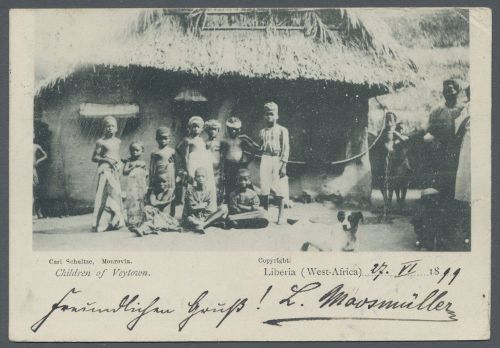 Carl Schultze, Monrovia. Copyright.
Children of Veytown. Liberia (West-Africa) 27. VI 1899
Freundlichen Gruß! L. Moosmüller